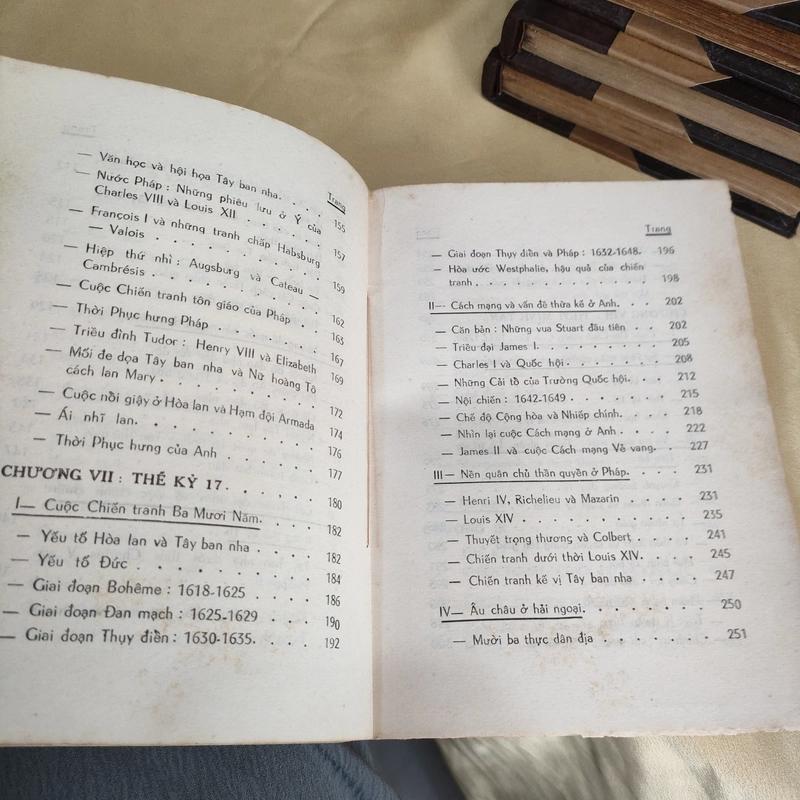 Trang
— Văn học và hội họa Tây ban nha. . . . 155
— Nước Pháp : Những phiêu lưu ở Ý của
Charles VIII và Louis XII . . . . . . 157
— François I và những tranh chấp Habsburg
— Valois . . . . . . . . . 159
— Hiệp thứ nhì : Augsburg và Cateau —
Cambrésis . . . . . . . . . 162
— Cuộc Chiến tranh tôn giáo của Pháp . . . 163
— Thời Phục hưng Pháp . . . . . . . 167
— Triều đình Tudor : Henry VIII và Elizabeth 169
— Mối đe dọa Tây ban nha và Nữ hoàng Tô
cách lan Mary . . . . . . . . 172
— Cuộc nổi giậy ở Hòa lan và Hạm đội Armada 174
— Ái nhĩ lan. . . . . . . . . 176
— Thời Phục hưng của Anh . . . . . 177
CHƯƠNG VII : THẾ KỶ 17. . . . . . 180
I— Cuộc Chiến tranh Ba Mươi Năm. . . . . 182
— Yếu tố Hòa lan và Tây ban nha . . . . 182
— Yếu tố Đức . . . . . . . . 184
— Giai đoạn Bohême : 1618-1625 . . . . 186
— Giai đoạn Đan mạch : 1625-1629 . . . . 190
— Giai đoạn Thụy điển : 1630-1635. . . . 192
Trang
— Giai đoạn Thụy điển và Pháp : 1632-1648. 196
— Hòa ước Westphalie, hậu quả của chiến
tranh . . . . . . . . . . . 198
II— Cách mạng và vấn đề thừa kế ở Anh. . . . 202
— Căn bản : Những vua Stuart đầu tiên . . 202
— Triều đại James I. . . . . . . . 205
— Charles I và Quốc hội . . . . . . . 208
— Những Cải tổ của Trường Quốc hội. . . . 212
— Nội chiến : 1642-1649 . . . . . . . 215
— Chế độ Cộng hòa và Nhiếp chính. . . . 218
— Nhìn lại cuộc Cách mạng ở Anh . . . . 222
— James II và cuộc Cách mạng Vẻ vang. . . 227
III— Nền quân chủ thần quyền ở Pháp. . . . 231
— Henri IV, Richelieu và Mazarin . . . . 231
— Louis XIV . . . . . . . . . 235
— Thuyết trọng thương và Colbert . . . . 241
— Chiến tranh dưới thời Louis XIV. . . . 245
— Chiến tranh kế vị Tây ban nha . . . . 247
IV— Âu châu ở hải ngoại. . . . . . . . 250
— Mười ba thực dân địa . . . . . . 251